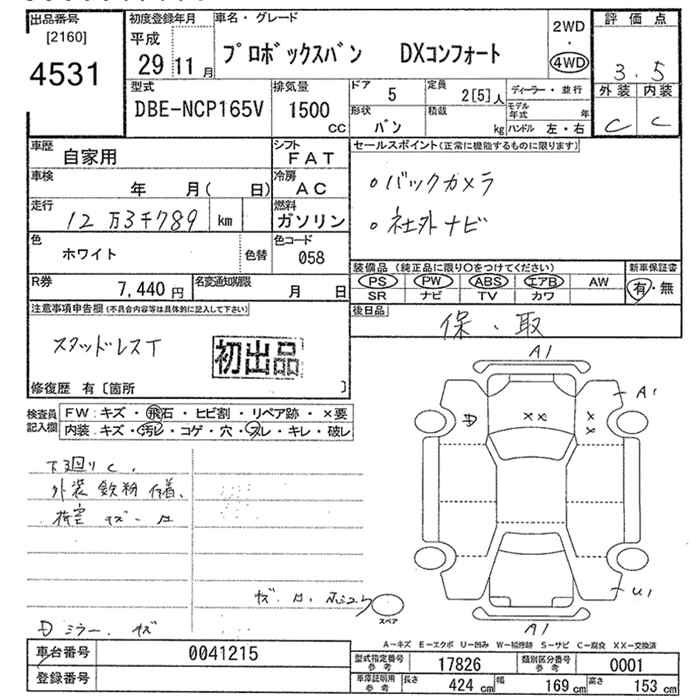 出品番号
[2160]
4531
初度登録年月
平成
29 11 月
車名・グレード
プロボックスバン DXコンフォート
2WD
・
4WD
評価点
3.5
外装 内装
C C
型式
DBE-NCP165V
排気量
1500
CC
ドア 5
定員 2[5]人
ディーラー・並行
形状 バン
積載 kg
モデル年式 年
ハンドル 左・右
車歴
自家用
シフト
FAT
車検
年 月( 日)
冷房
AC
走行
12万3千789 km
燃料
ガソリン
色
ホワイト
色替
色コード
058
R券
7,440円
名変通知期限
月 日
セールスポイント(正常に機能するものに限ります)
○バックカメラ
○社外ナビ
装備品(純正品に限り○をつけてください)
PS PW ABS エアB AW
SR ナビ TV カワ
新車保証書
有・無
後日品
保・取
注意事項申告欄(不具合内容等は具体的に記入して下さい)
スタッドレスT
初出品
修復歴 有〔箇所 〕
検査員記入欄
FW:キズ・飛石・ヒビ割・リペア跡・×要
内装:キズ・汚レ・コゲ・穴・スレ・キレ・破レ
下廻りC.
外装鉄粉付着.
荷室 キズ・凹
キズ・凹
D ミラー キズ
A1
A1
D
××
××
U1
A1
スペア
A-キズ E-エクボ U-凹み W-補修跡 S-サビ C-腐食 XX-交換済
車台番号
0041215
登録番号
型式指定番号参考
17826
類別区分番号参考
0001
車庫証明用参考
長さ 424 cm 幅 169 cm 高さ 153 cm